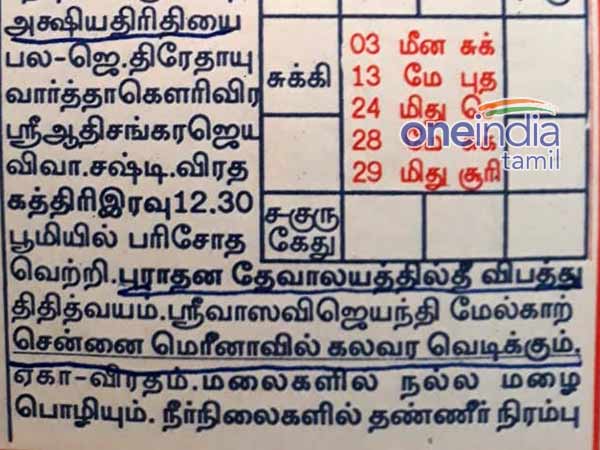 அக்ஷியதிரிதியை
பல-ஜெ.திரேதாயு
வார்த்தாகௌரிவிர
ஸ்ரீஆதிசங்கரஜெய
விவா.சஷ்டி.விரத
கத்திரிஇரவு12.30
பூமியில் பரிசோத
வெற்றி.புராதன தேவாலயத்தில்தீ விபத்து
திதித்வயம்.ஸ்ரீவாஸவிஜெயந்தி மேல்காற்
சென்னை மெரீனாவில் கலவர வெடிக்கும்.
ஏகா-விரதம்.மலைகளில் நல்ல மழை
பொழியும். நீர்நிலைகளில் தண்ணீர் நிரம்பு
சுக்கி
ச-குரு
கேது
03 மீன சுக்
13 மே புத
24 மிது
28
29 மிது சூரி
oneindia
tamil